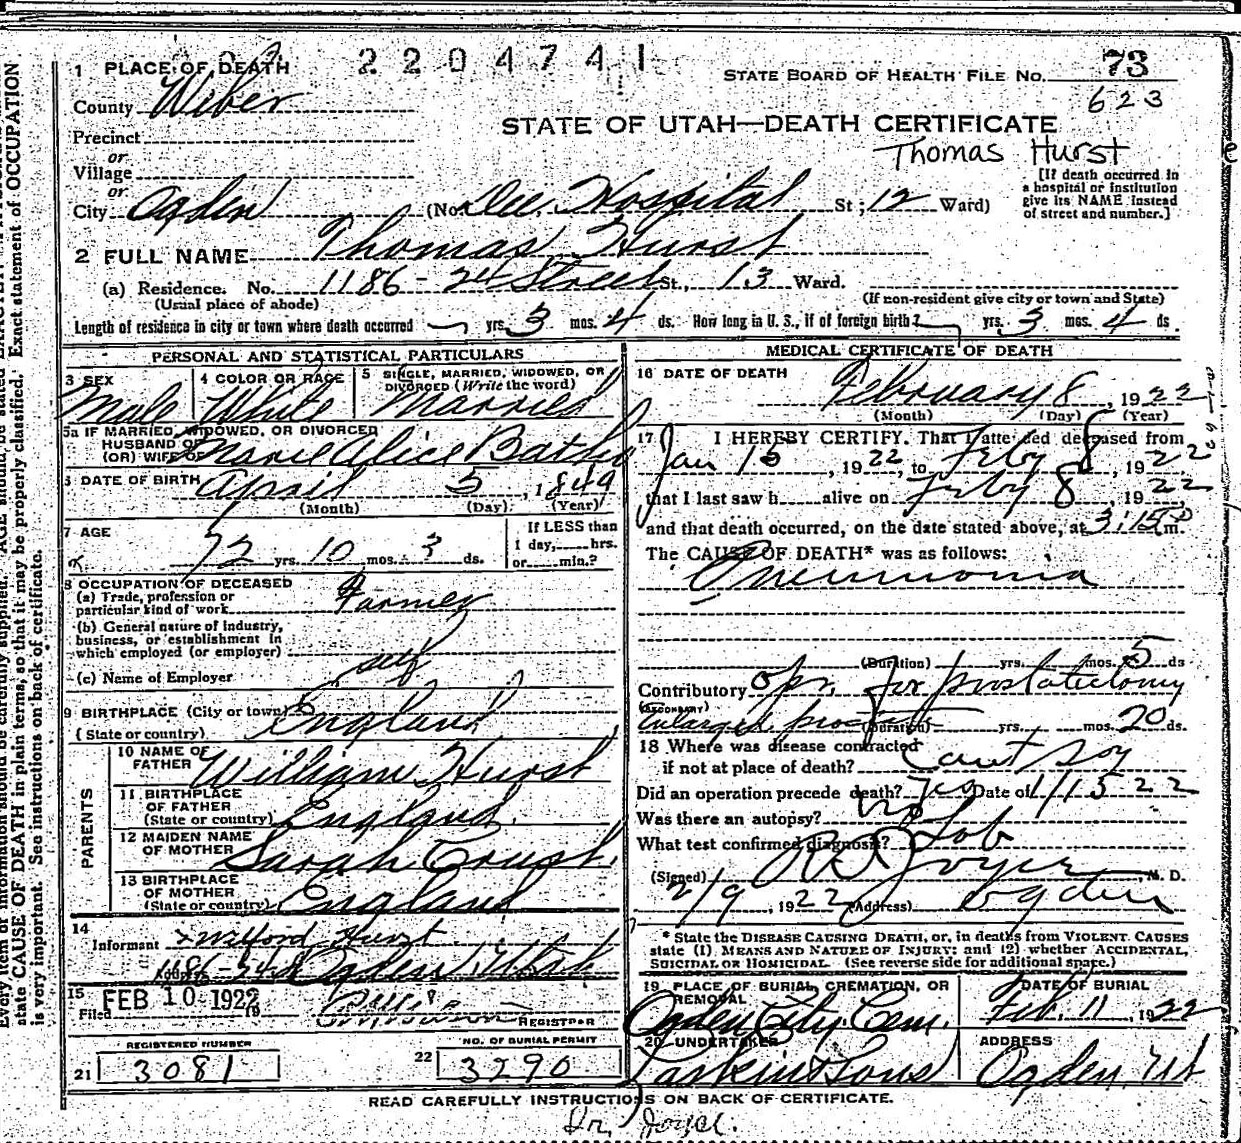 2204741
1 PLACE OF DEATH
STATE BOARD OF HEALTH FILE NO. 73
County Weber
623
STATE OF UTAH—DEATH CERTIFICATE
Precinct
Thomas Hurst
or
Village
or
City Ogden (No. Dee Hospital St; 12 Ward)
[If death occurred in
a hospital or institution
give its NAME instead
of street and number.]
2 FULL NAME Thomas Hurst
(a) Residence. No. 1186 - 24 Street St., 13 Ward.
(Usual place of abode) (If non-resident give city or town and State)
Length of residence in city or town where death occurred yrs. 3 mos. 4 ds. How long in U. S., if of foreign birth? yrs. 3 mos. 4 ds.
PERSONAL AND STATISTICAL PARTICULARS
3 SEX
Male
4 COLOR OR RACE
White
5 SINGLE, MARRIED, WIDOWED, OR
DIVORCED (Write the word)
Married
5a IF MARRIED, WIDOWED, OR DIVORCED
HUSBAND OF
(OR) WIFE OF Marie Alice
6 DATE OF BIRTH April 5, 1849
(Month) (Day) (Year)
7 AGE
72 yrs. 10 mos. 3 ds.
If LESS than
1 day, hrs.
or min.?
8 OCCUPATION OF DECEASED
(a) Trade, profession or
particular kind of work Farmer
(b) General nature of industry,
business, or establishment in
which employed (or employer)
(c) Name of Employer self
9 BIRTHPLACE (City or town)
(State or country) England
PARENTS
10 NAME OF
FATHER William Hurst
11 BIRTHPLACE
OF FATHER
(State or country) England
12 MAIDEN NAME
OF MOTHER Sarah
13 BIRTHPLACE
OF MOTHER
(State or country) England
14
Informant Wilford Hurst
Address 1186-24 St Ogden, Utah
15 Filed FEB 10 1922 19
REGISTRAR
REGISTERED NUMBER
21 3081
NO. OF BURIAL PERMIT
22 3290
MEDICAL CERTIFICATE OF DEATH
16 DATE OF DEATH
February 8, 1922
(Month) (Day) (Year)
17 I HEREBY CERTIFY, That I attended deceased from
Jan 15, 1922, to Feby 8, 1922
that I last saw h alive on Feby 8, 1922
and that death occurred, on the date stated above, at 3:15 P m.
The CAUSE OF DEATH* was as follows:
Pneumonia
(Duration) yrs. mos. 5 ds
Contributory opr. for prostatectomy
(SECONDARY)
enlarged prostate (Duration) yrs. mos. 20 ds.
18 Where was disease contracted
if not at place of death? Cant say
Did an operation precede death? Yes Date of 1/15 22
Was there an autopsy? No
What test confirmed diagnosis? Lob
(Signed) Joyce, M. D.
2/9, 1922 (Address) Ogden
* State the DISEASE CAUSING DEATH, or, in deaths from VIOLENT CAUSES
state (1) MEANS AND NATURE OF INJURY; and (2) whether ACCIDENTAL,
SUICIDAL OR HOMICIDAL. (See reverse side for additional space.)
19 PLACE OF BURIAL, CREMATION, OR
REMOVAL
Ogden City Cem.
DATE OF BURIAL
Feb. 11, 1922
20 UNDERTAKER
Larkin & Sons
ADDRESS
Ogden, Ut
READ CAREFULLY INSTRUCTIONS ON BACK OF CERTIFICATE.
Dr. Joyce.
state CAUSE OF DEATH in plain terms, so that it may be properly classified. Exact statement of OCCUPATION
is very important. See instructions on back of certificate.